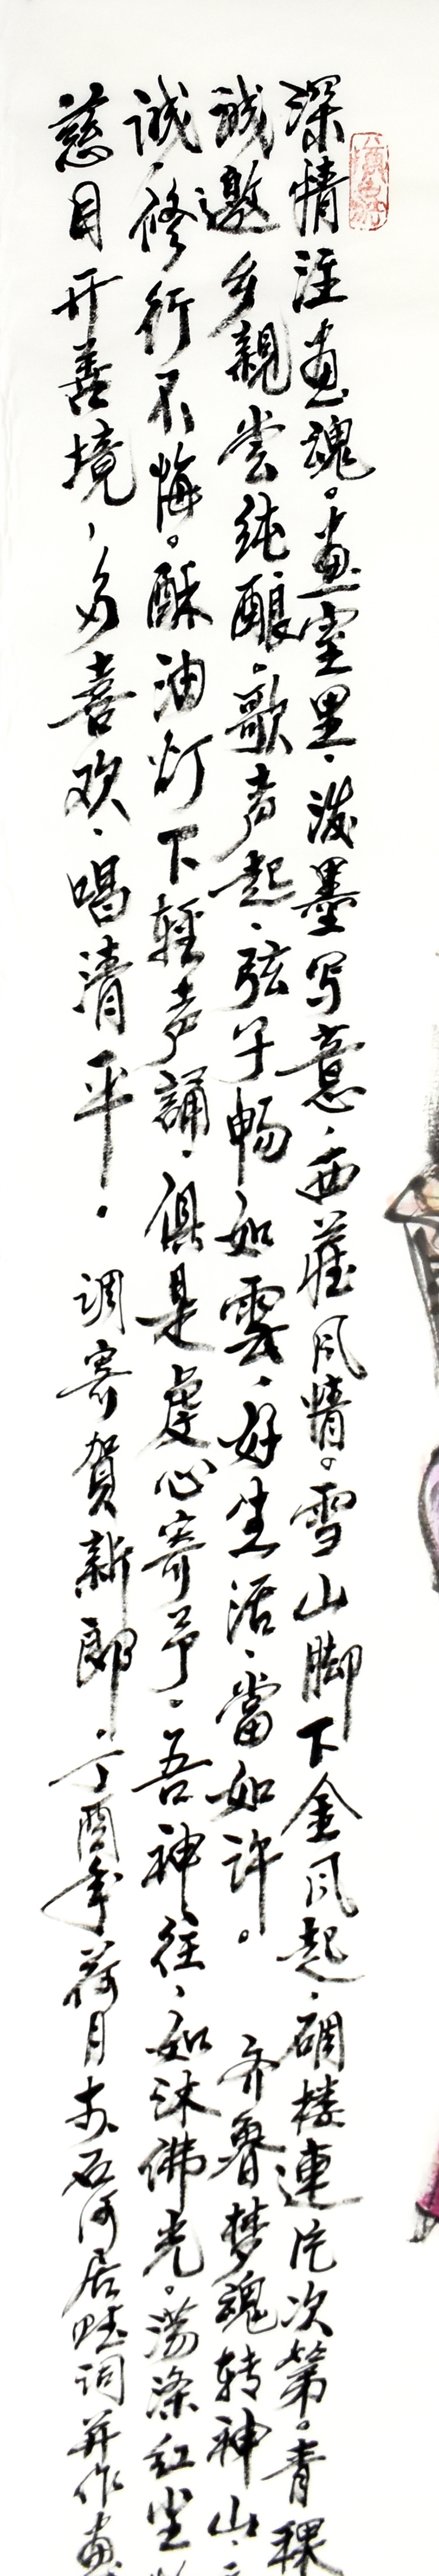 深情注画魂。画室里、泼墨写意、西藏风情。雪山脚下金风起、碉楼連片次第。青稞
诚邀乡親尝纯酿。歌声起、弦子畅如雲、好生活、當如许。 齐鲁梦魂转神山、
诚、修行不悔。酥油灯下輕声誦、俱是虔心寄予。吾神往、如沐佛光。荡涤红尘
慈目开善境，多喜欢、唱清平。 调寄贺新郎、丁酉年荷月末石河居吐词并作画